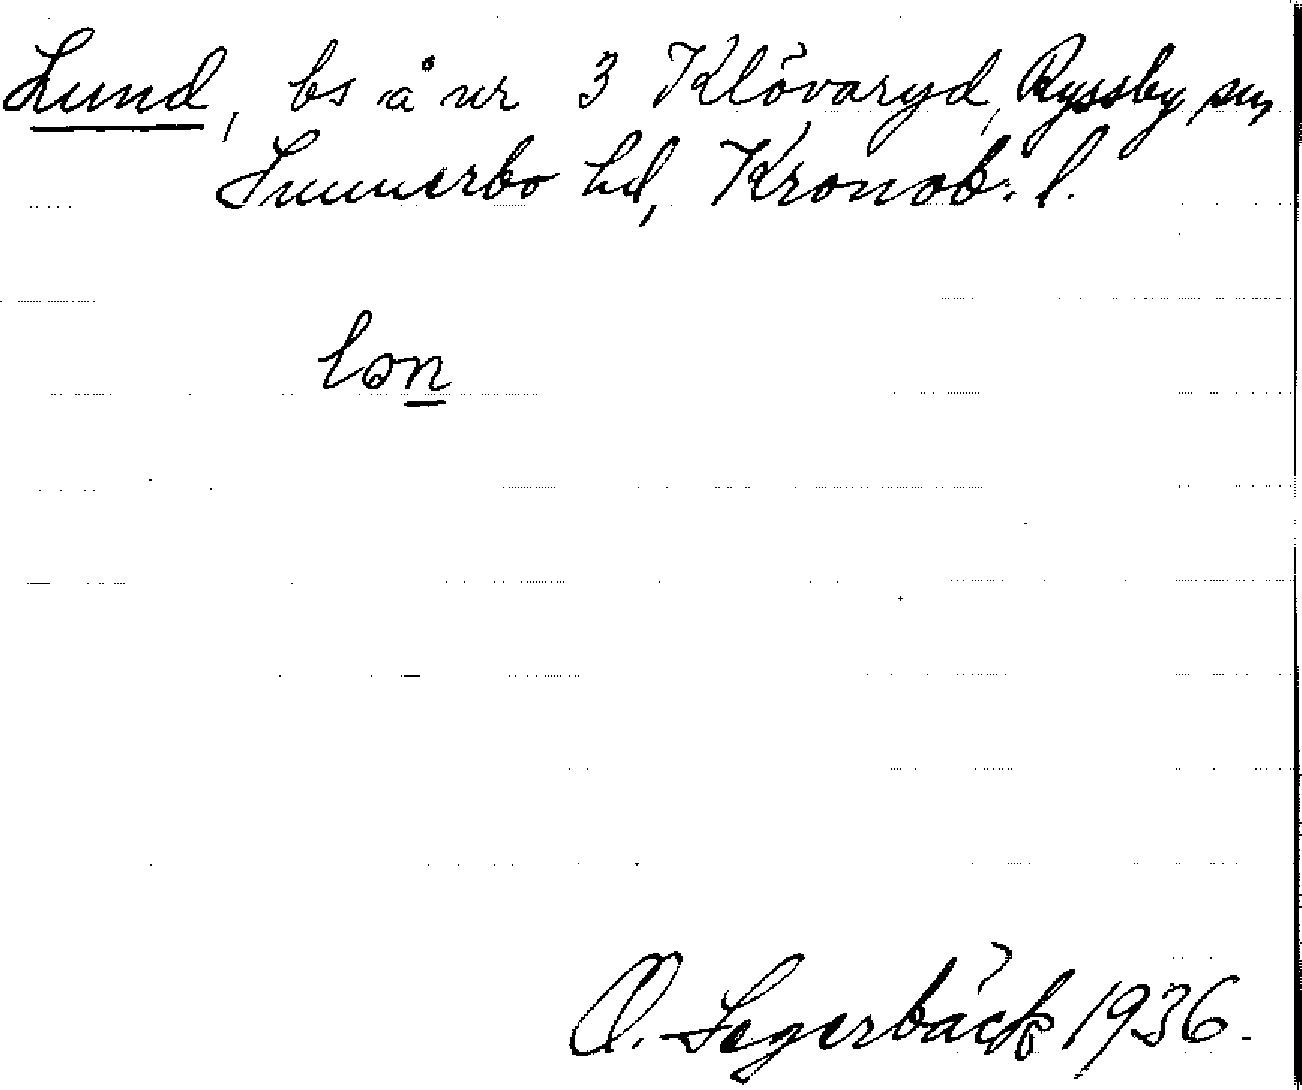 Lund, bs å nr 3 Klövaryd, Ryssby sn,
Sunnerbo hd, Kronob. l.
lɔn
O. Segerbäck 1936.